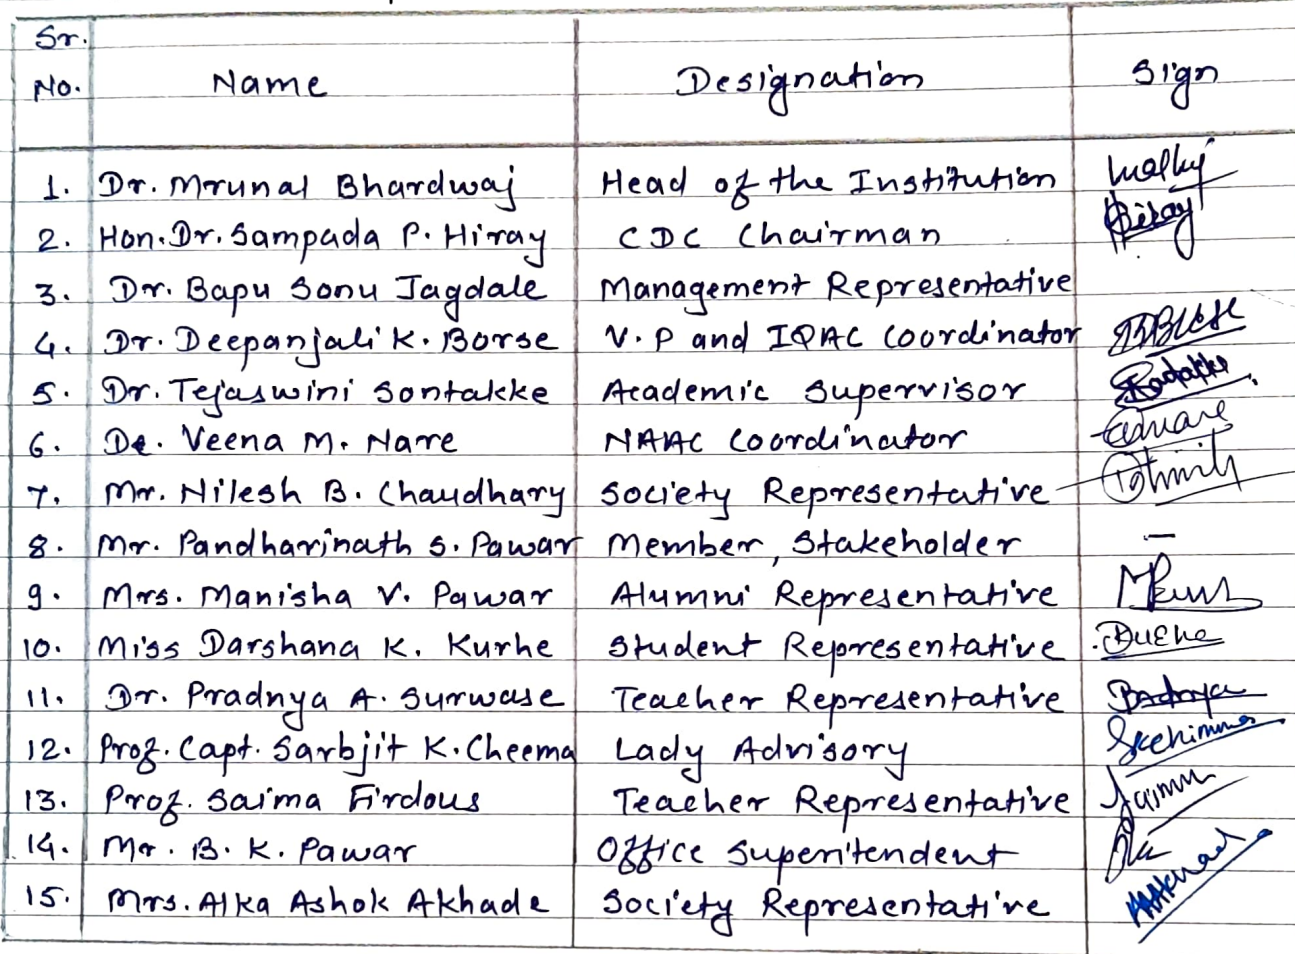 Sr. No. Name Designation Sign
1. Dr. Mrunal Bhardwaj Head of the Institution
2. Hon. Dr. Sampada P. Hiray CDC Chairman Hiray
3. Dr. Bapu Sonu Jagdale Management Representative
4. Dr. Deepanjali K. Borse V.P and IQAC Coordinator
5. Dr. Tejaswini Sontakke Academic Supervisor
6. Dr. Veena M. Nare NAAC Coordinator
7. Mr. Nilesh B. Chaudhary Society Representative
8. Mr. Pandharinath S. Pawar Member, Stakeholder —
9. Mrs. Manisha V. Pawar Alumni Representative
10. Miss Darshana K. Kurhe Student Representative
11. Dr. Pradnya A. Surwase Teacher Representative
12. Prof. Capt. Sarbjit K. Cheema Lady Advisory
13. Prof. Saima Firdous Teacher Representative
14. Mr. B. K. Pawar Office Superitendent
15. Mrs. Alka Ashok Akhade Society Representative